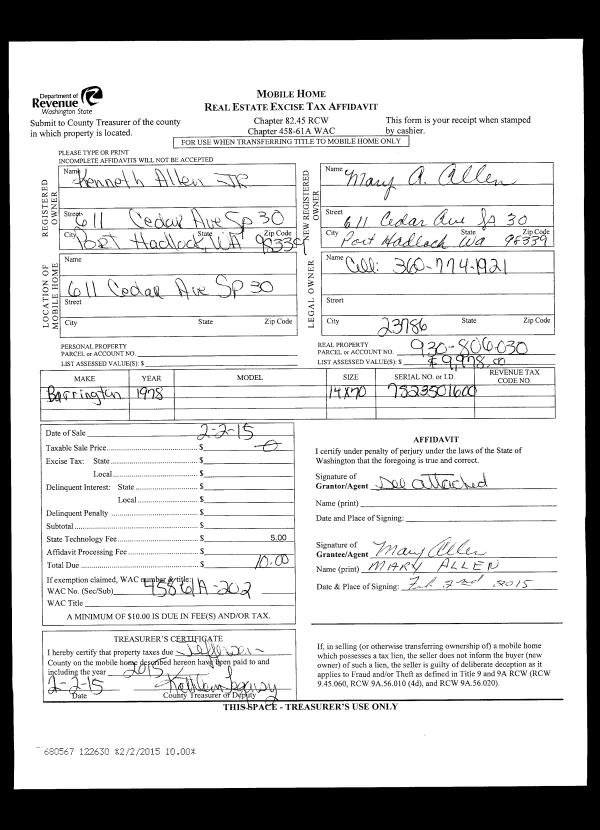 Department of
Revenue
Washington State
MOBILE HOME
REAL ESTATE EXCISE TAX AFFIDAVIT
Submit to County Treasurer of the county
in which property is located.
Chapter 82.45 RCW
Chapter 458-61A WAC
This form is your receipt when stamped
by cashier.
FOR USE WHEN TRANSFERRING TITLE TO MOBILE HOME ONLY
PLEASE TYPE OR PRINT
INCOMPLETE AFFIDAVITS WILL NOT BE ACCEPTED
REGISTERED OWNER
Name Kenneth Allen JR
Street 611 Cedar Ave Sp 30
City Port Hadlock, State WA Zip Code 98339
NEW REGISTERED OWNER
Name Mary A. Allen
Street 611 Cedar Ave Sp 30
City Port Hadlock State Wa Zip Code 98339
LOCATION OF MOBILE HOME
Name
611 Cedar Ave Sp 30
Street
City State Zip Code
LEGAL OWNER
Name Cell: 360-774-1921
Street
City State Zip Code
23786
PERSONAL PROPERTY
PARCEL or ACCOUNT NO.
LIST ASSESSED VALUE(S): $
REAL PROPERTY
PARCEL or ACCOUNT NO. 930-806-030
LIST ASSESSED VALUE(S): $ 9,978.00
MAKE YEAR MODEL SIZE SERIAL NO. or I.D. REVENUE TAX CODE NO.
Barrington 1978 14x70 7523501600
Date of Sale 2-2-15
Taxable Sale Price $ 0
Excise Tax: State $
Local $
Delinquent Interest: State $
Local $
Delinquent Penalty $
Subtotal $
State Technology Fee $ 5.00
Affidavit Processing Fee $
Total Due $ 10.00
If exemption claimed, WAC number & title:
WAC No. (Sec/Sub) 45861A-202
WAC Title
A MINIMUM OF $10.00 IS DUE IN FEE(S) AND/OR TAX.
AFFIDAVIT
I certify under penalty of perjury under the laws of the State of
Washington that the foregoing is true and correct.
Signature of
Grantor/Agent See attached
Name (print)
Date and Place of Signing:
Signature of
Grantee/Agent Mary Allen
Name (print) MARY ALLEN
Date & Place of Signing: Feb 2nd 2015
TREASURER'S CERTIFICATE
I hereby certify that property taxes due Jefferson
County on the mobile home described hereon have been paid to and
including the year 2015
2-2-15
Date County Treasurer or Deputy
If, in selling (or otherwise transferring ownership of) a mobile home
which possesses a tax lien, the seller does not inform the buyer (new
owner) of such a lien, the seller is guilty of deliberate deception as it
applies to Fraud and/or Theft as defined in Title 9 and 9A RCW (RCW
9.45.060, RCW 9A.56.010 (4d), and RCW 9A.56.020).
THIS SPACE - TREASURER'S USE ONLY
680567 122630 *2/2/2015 10.00*